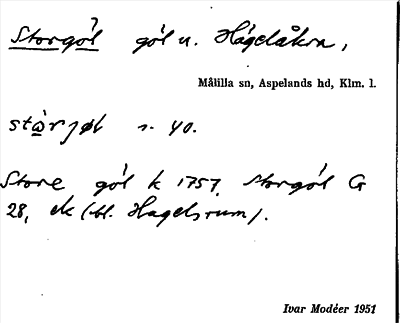 Storgöl göl u. Hagelåkra,
Målilla sn, Aspelands hd, Klm. l.
s. 40.
Store göl k 1757, Storgöl G
28, ek (bl. Hagelsrum).
Ivar Modéer 1951